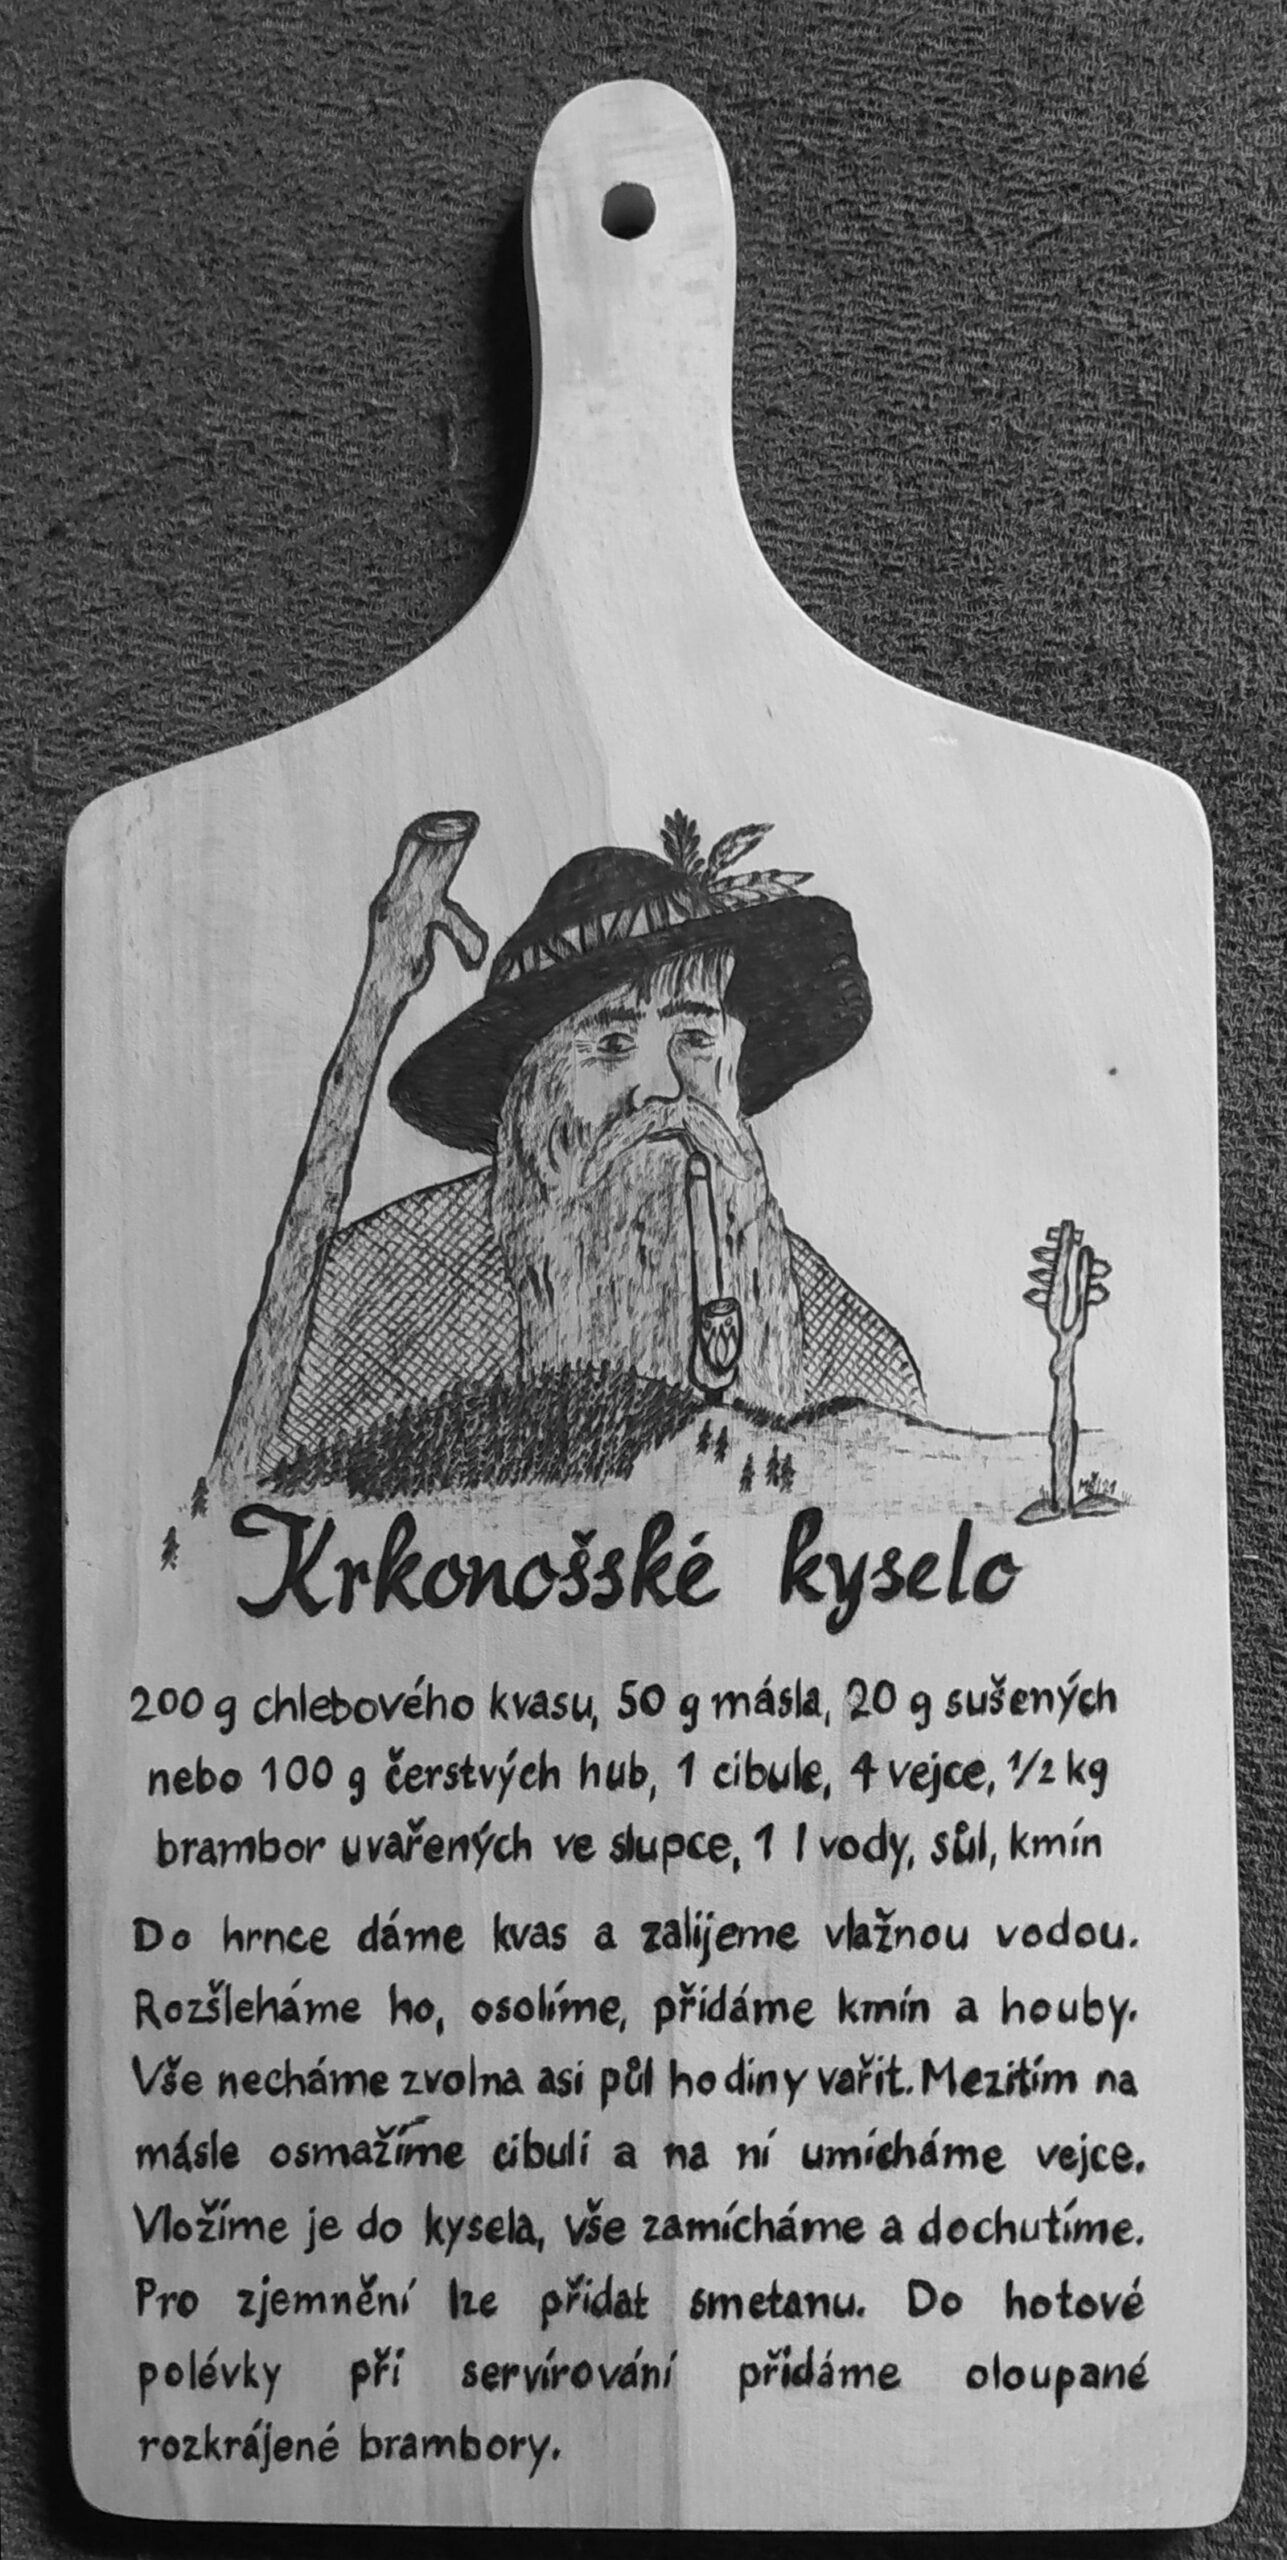 Krkonošské kyselo
200 g chlebového kvasu, 50 g másla, 20 g sušených
nebo 100 g čerstvých hub, 1 cibule, 4 vejce, 1/2 kg
brambor uvařených ve slupce, 1 l vody, sůl, kmín
Do hrnce dáme kvas a zalijeme vlažnou vodou.
Rozšleháme ho, osolíme, přidáme kmín a houby.
Vše necháme zvolna asi půl hodiny vařit. Mezitím na
másle osmažíme cibuli a na ní umícháme vejce.
Vložíme je do kysela, vše zamícháme a dochutíme.
Pro zjemnění lze přidat smetanu. Do hotové
polévky při servírování přidáme oloupané
rozkrájené brambory.